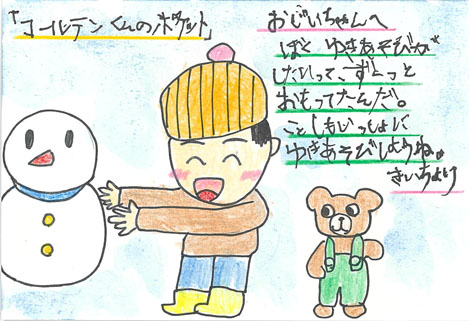 「コールテンくんのポケット」
おじいちゃんへ
ぼく ゆきあそびが
したいって、ずーっと
おもってたんだ。
ことしもいっしょに
ゆきあそびしようね。
きいちより